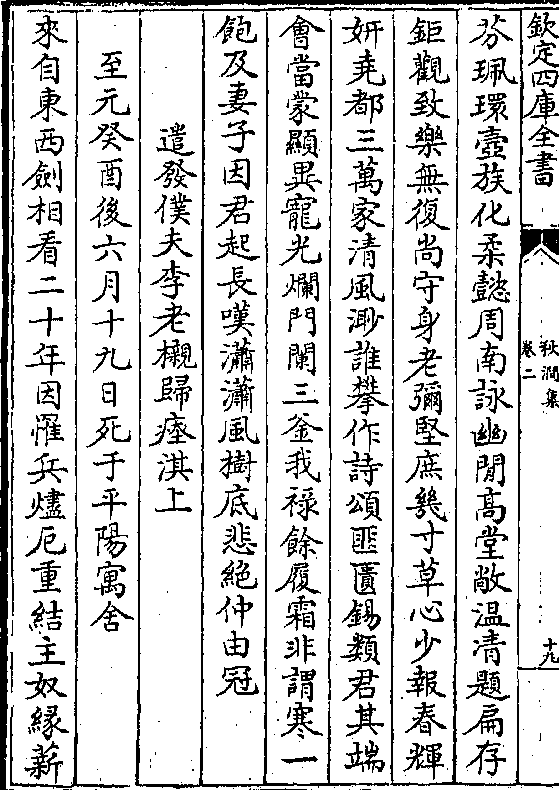 欽定四庫全書
秋澗集
卷二
十九
芬珮環壼族化柔懿周南詠幽閒髙堂敞温凊題扁存
鉅觀致樂無復尚守身老彌堅庶幾寸草心少報春輝
妍堯都三萬家清風渺誰攀作詩頌匪匱錫類君其端
會當蒙顯異寵光爛門闌三釜我禄餘履霜非謂寒一
飽及妻子因君起長嘆瀟瀟風樹底悲絶仲由冠
遣發僕夫李老櫬歸瘞淇上
至元癸酉後六月十九日死于平陽寓舍
來自東西劍相看二十年因罹兵燼厄重結主奴緣薪